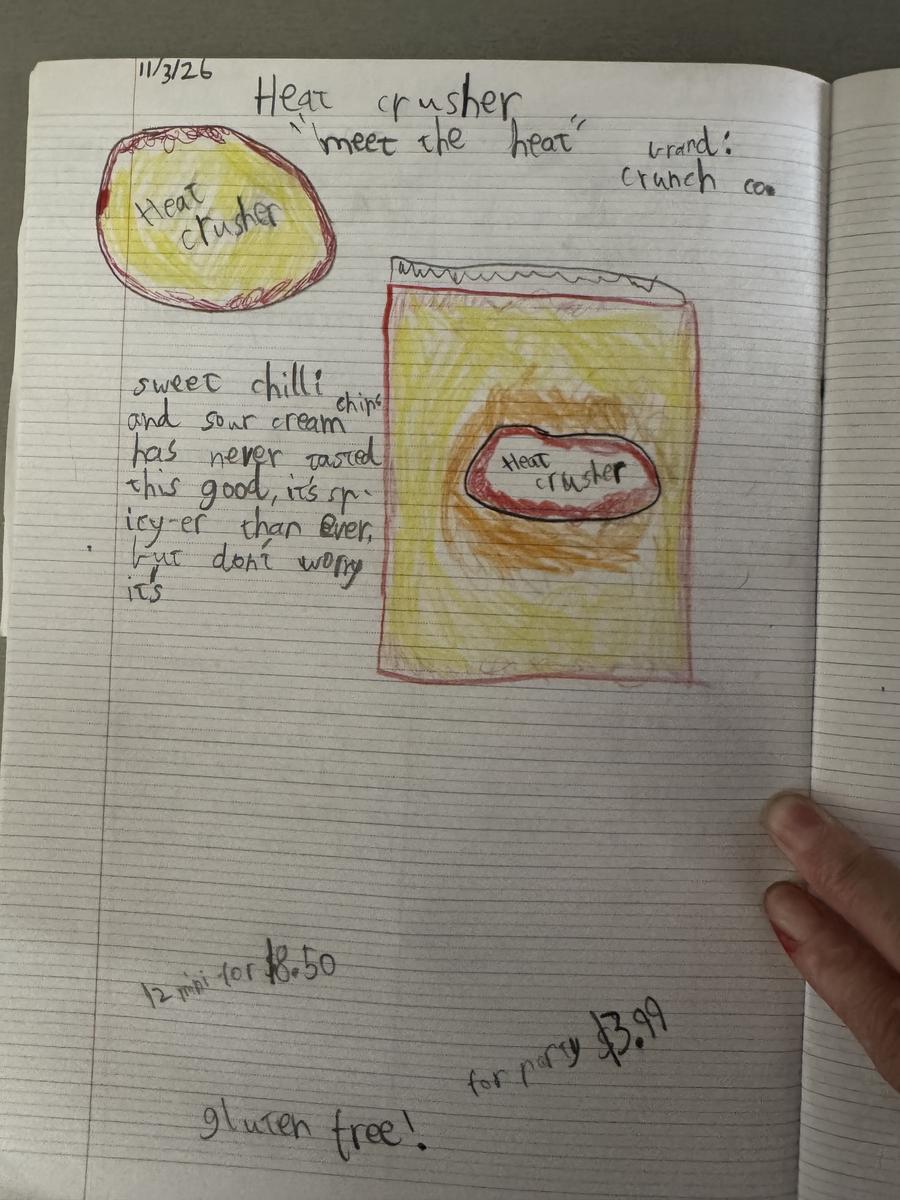 11/3/26
Heat crusher
"meet the heat"
brand:
crunch co.
Heat
crusher
sweet chilli
chips
and sour cream
has never tasted
this good, it's sp-
icy-er than ever,
but don't worry
it's
Heat
crusher
12 mini for $8.50
for party $3.99
gluten free!